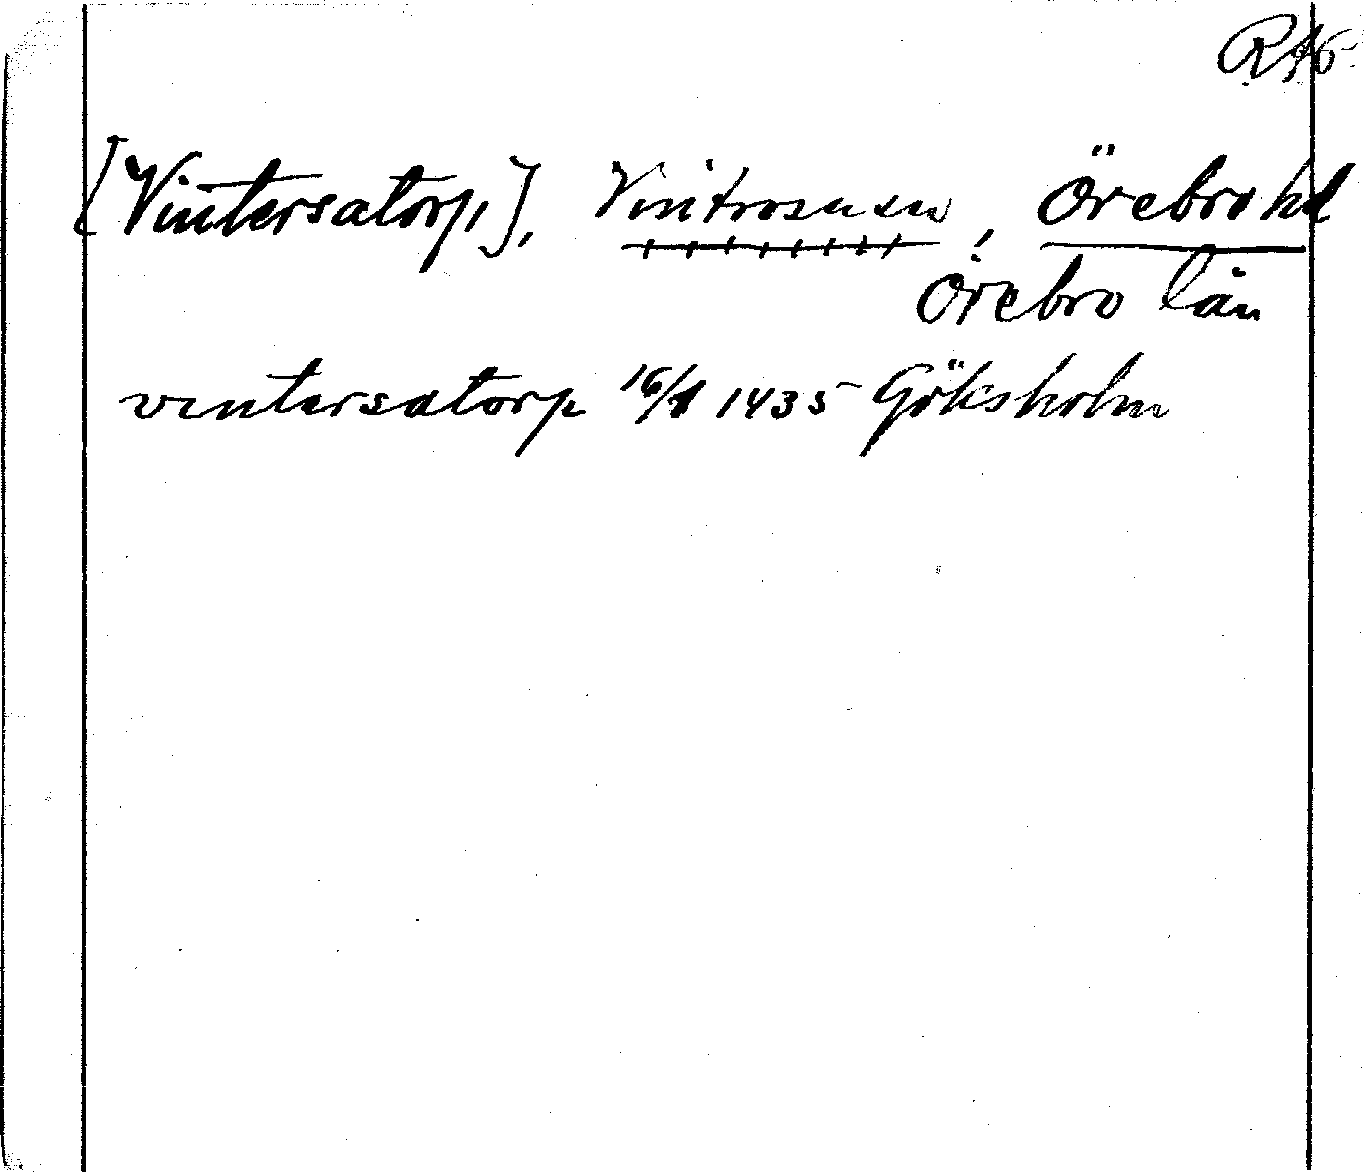 [Vintersatorp,], Vintrosa sn, Örebro hd
Örebro län
vintersatorp 16/1 1435 Göksholm